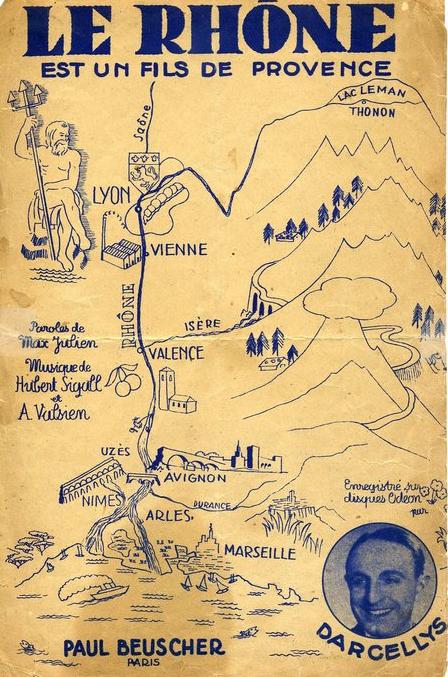 LE RHÔNE
EST UN FILS DE PROVENCE
LAC LEMAN
THONON
Saône
LYON
VIENNE
RHÔNE
ISÈRE
VALENCE
Paroles de
Max Julien
Musique de
Hubert Sigall
et
A. Valsien
UZÈS
AVIGNON
NIMES
DURANCE
ARLES
MARSEILLE
Enregistré sur
disques Odeon
par
DARCELLYS
PAUL BEUSCHER
PARIS